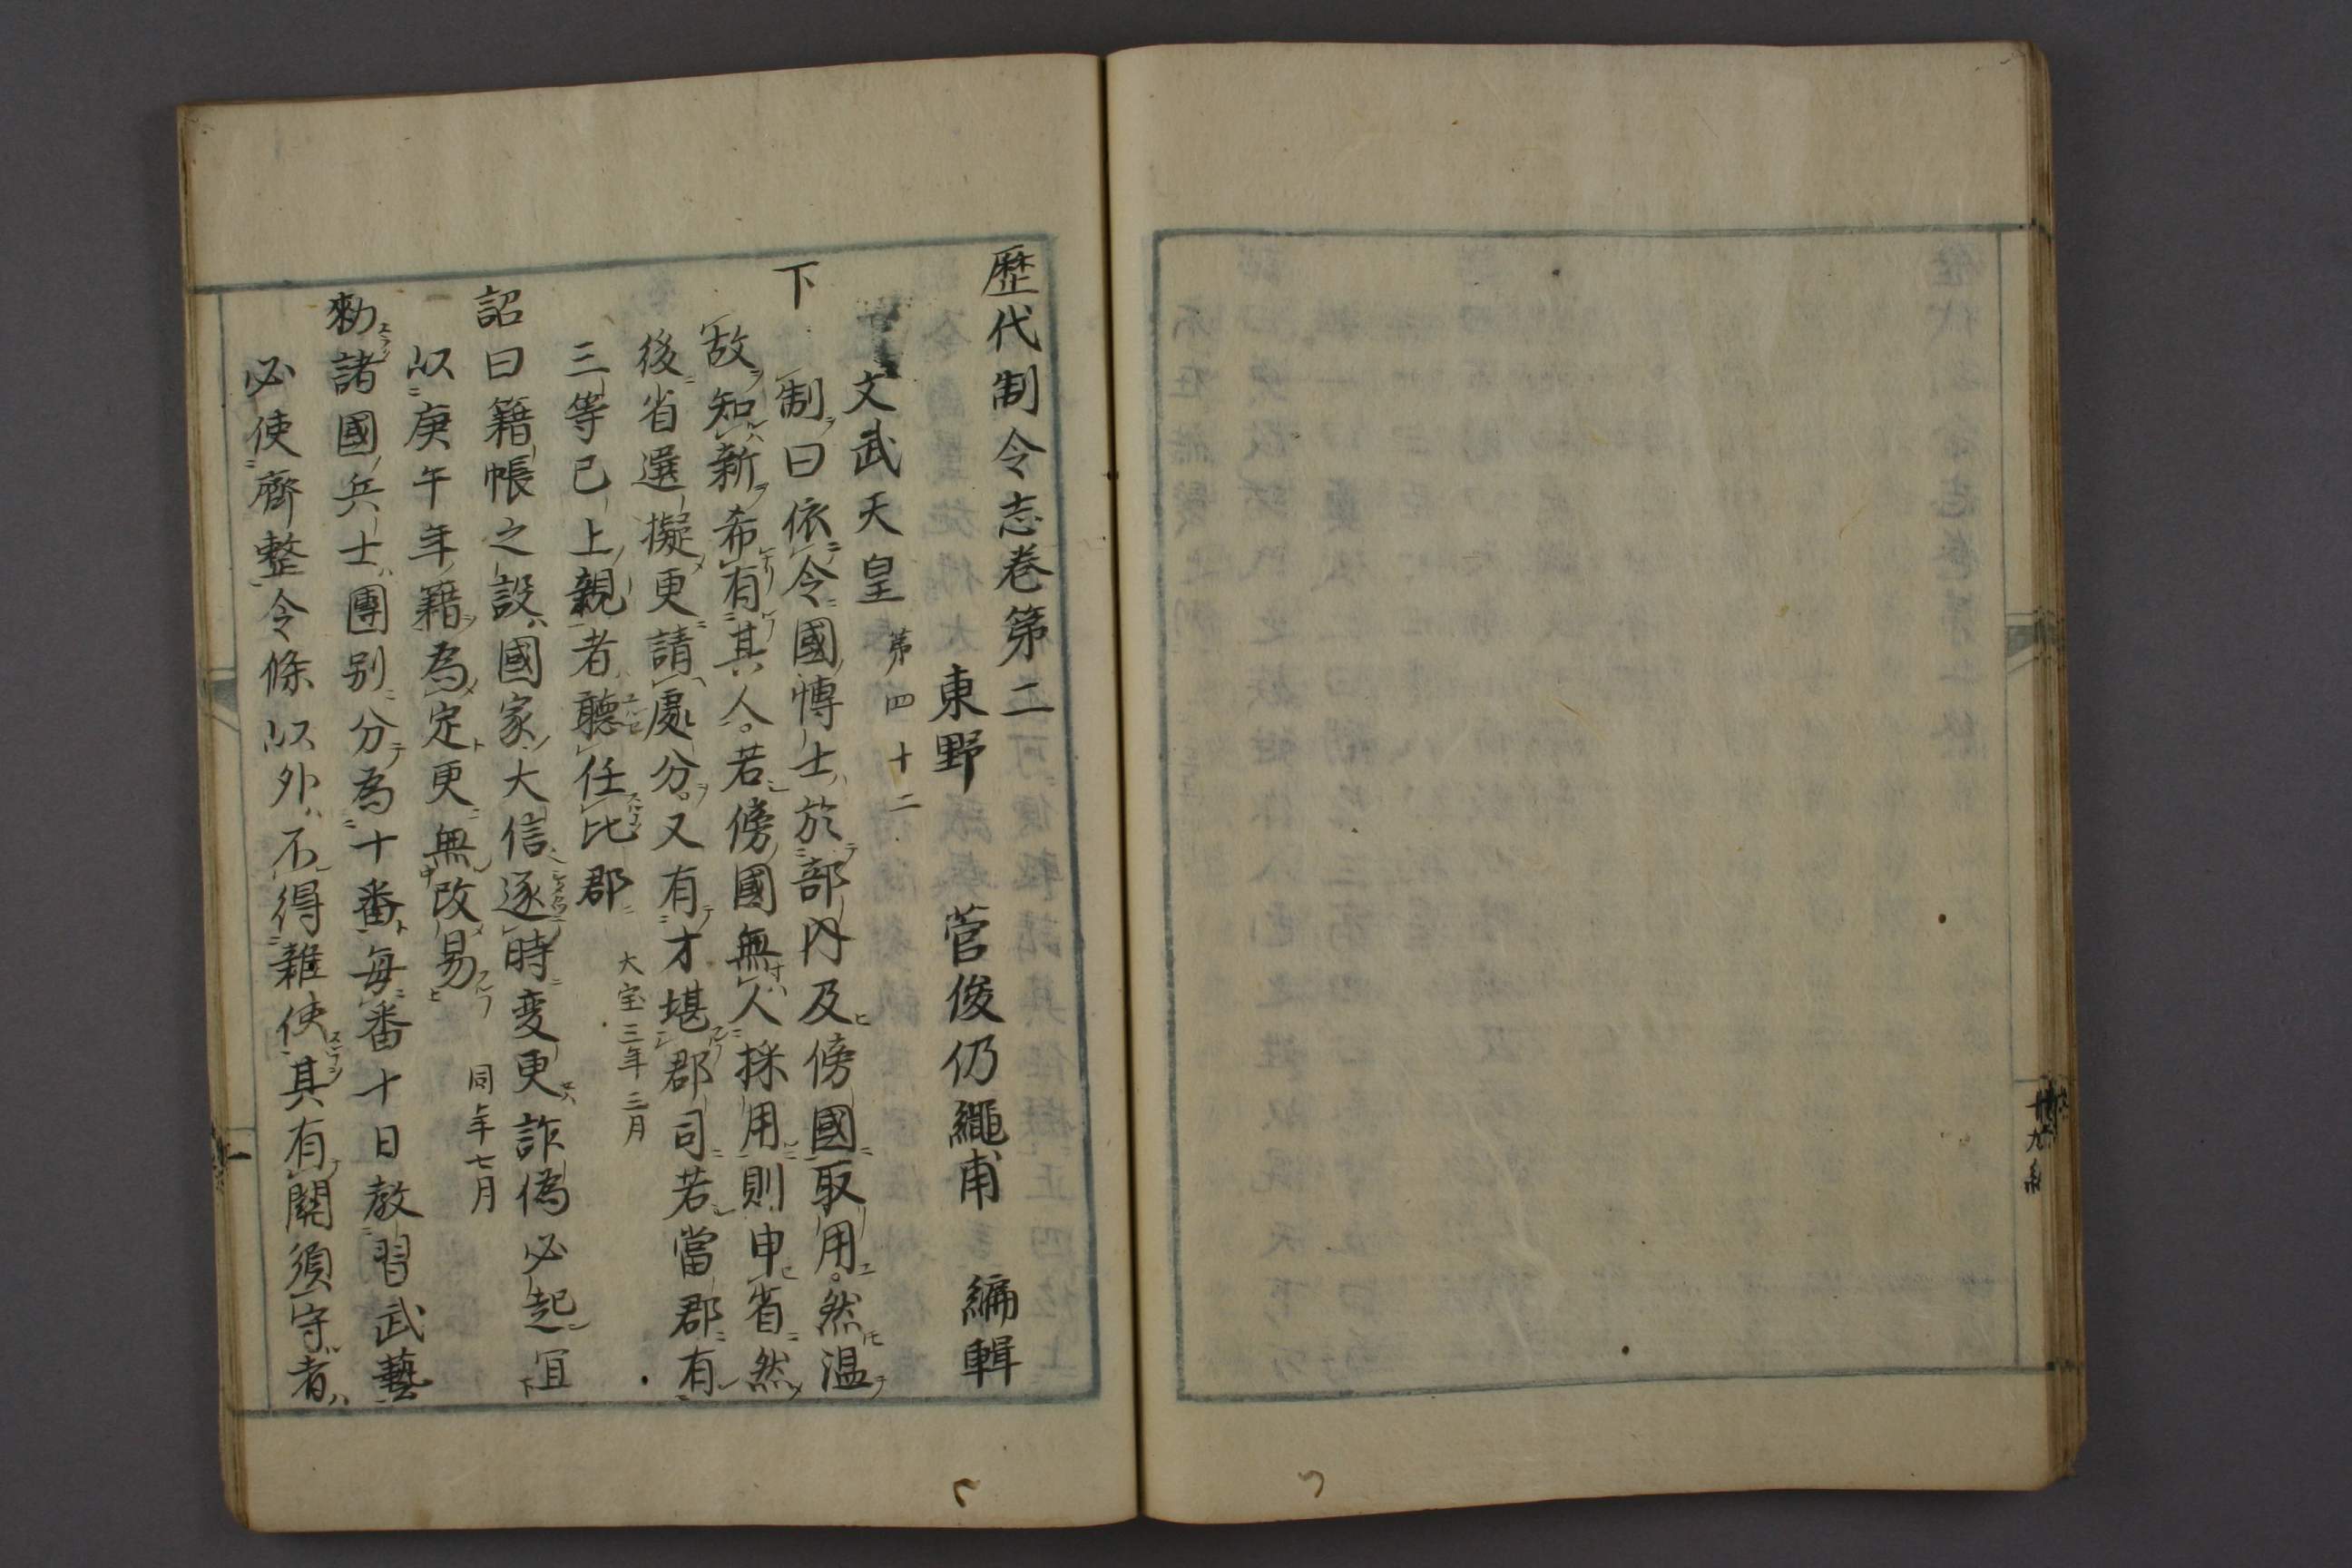 歴代制令志巻第二
東野 菅俊仍繩甫 編輯
文武天皇 第四十二
下
制曰依令國博士於部内及傍國取用。然温
故知新希有其人。若傍國無人採用則申省然
後省選擬更請處分。又有才堪郡司若當郡有
三等已上親者聽任比郡 大宝三年三月
詔曰籍帳之設國家大信逐時変更詐偽必起宜
以庚午年籍為定更無改易 同年七月
勅諸國兵士團別分為十番毎番十日教習武藝
必使齊整令條以外不得雜使其有關須守者